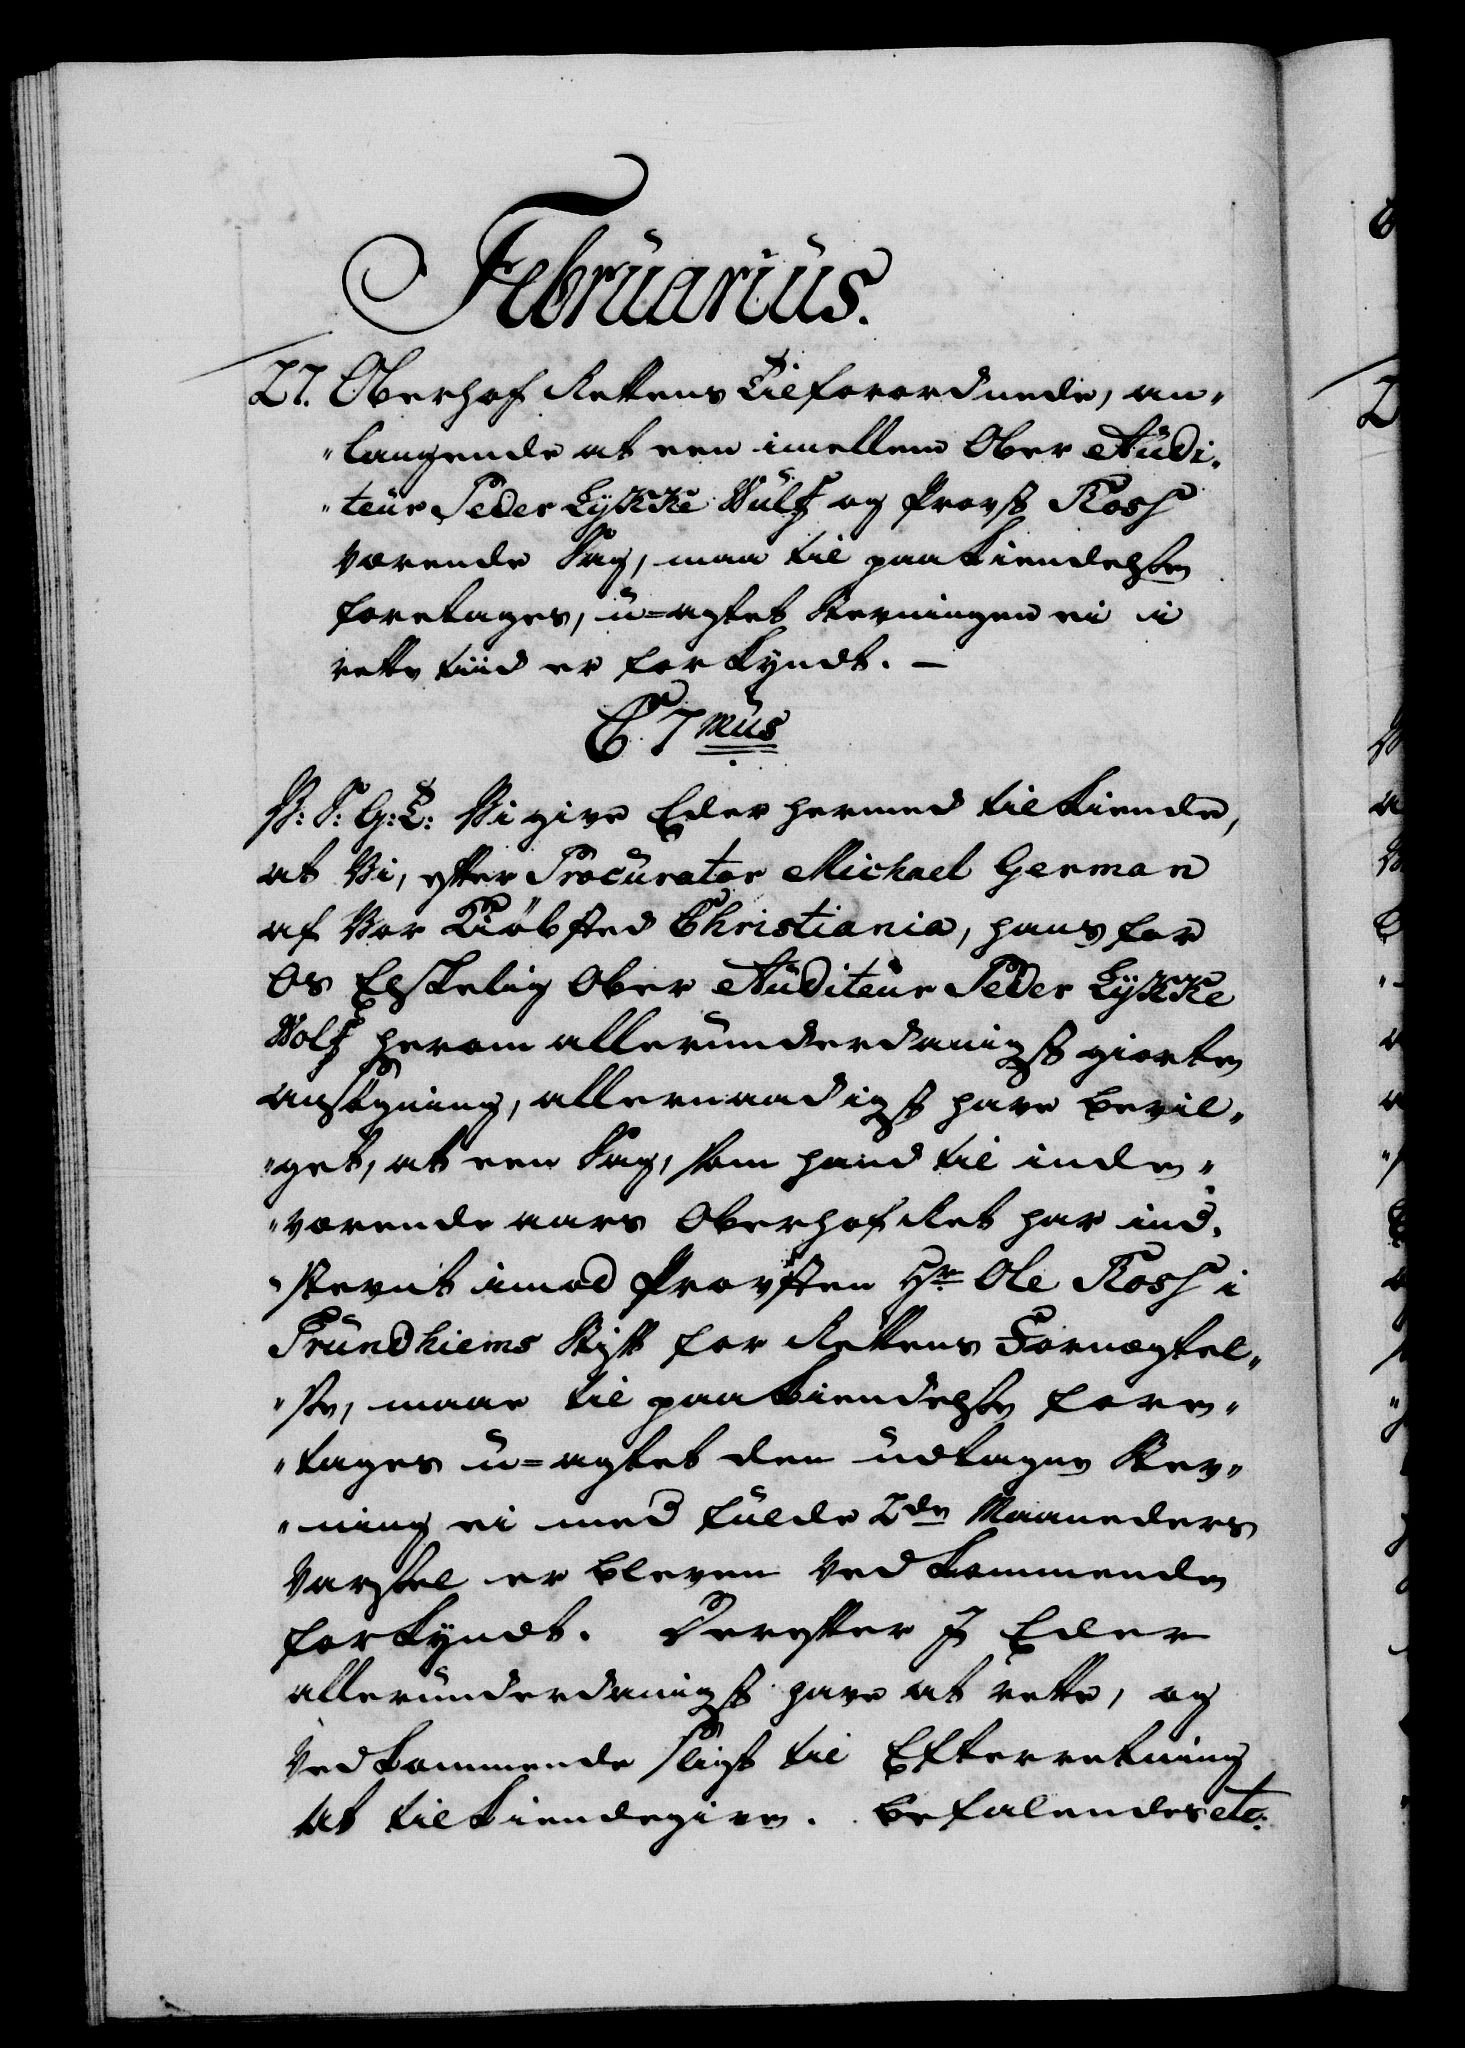 Februarius.
27. Oberhof Rettens Tilforordnede, an-
-langende at een imellem Ober Audi-
-teur Peder Lykke Wulf og Provst Rosh
værende Sag, maa til paakiendelse
foretages, u-agtet Stevningen ei i
rette tiid er forkyndt. —
C. 7mus
V: S: G: T: Vi give Eder hermed tilkiende,
at Vi, efter Procurator Michael German
af Vor Kiöbsted Christiania, paa for
Os Elskelig Ober Auditeur Peder Lykke
Wolf herom allerunderdanigst giorte
ansögning, allernaadigst have bevil-
-get, at een Sag, som hand til inde-
-værende aars Oberhof Ret har ind-
-stevnt imod Provsten Hr. Ole Rosh i
Trundhiems Stift for Rettens Fornægtel-
-se, maae til paakiendelse fore-
-tages u-agtet den udtagne Stev-
-ning ei med fulde 2de Maaneders
Varsel er bleven Vedkommende
forkyndt. Derefter I Eder
allerunderdanigst have at rette, og
Vedkommende sligt til Efterretning
at tilkiendegive. Befalendes etc: